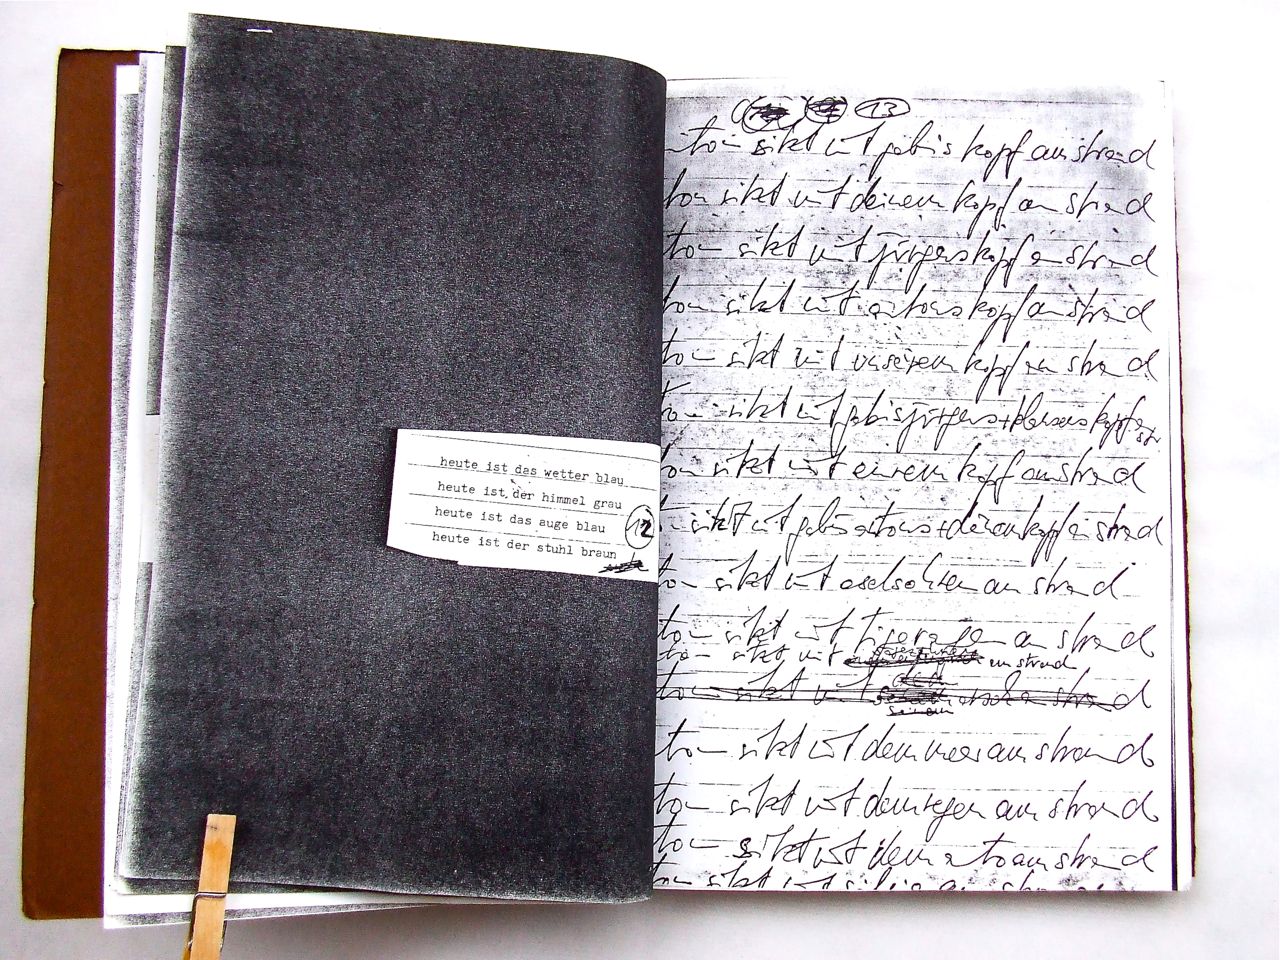 heute ist das wetter blau
heute ist der himmel grau
heute ist das auge blau
heute ist der stuhl braun
12
13
tom sitzt mit gabis kopf am strand
tom sitzt mit deinem kopf am strand
tom sitzt mit jürgens kopf am strand
tom sitzt mit kopf am strand
tom sitzt mit unserem kopf am strand
tom sitzt mit gabis jürgens +
tom sitzt mit einem kopf am strand
sitzt mit gabis + deinem kopf am strand
tom sitzt mit eselsohren am strand
tom sitzt mit am strand
tom sitzt mit am strand
tom sitzt mit
seinem
tom sitzt mit dem meer am strand
tom sitzt mit dem regen am strand
tom sitzt mit dem auto am strand
tom sitzt mit am